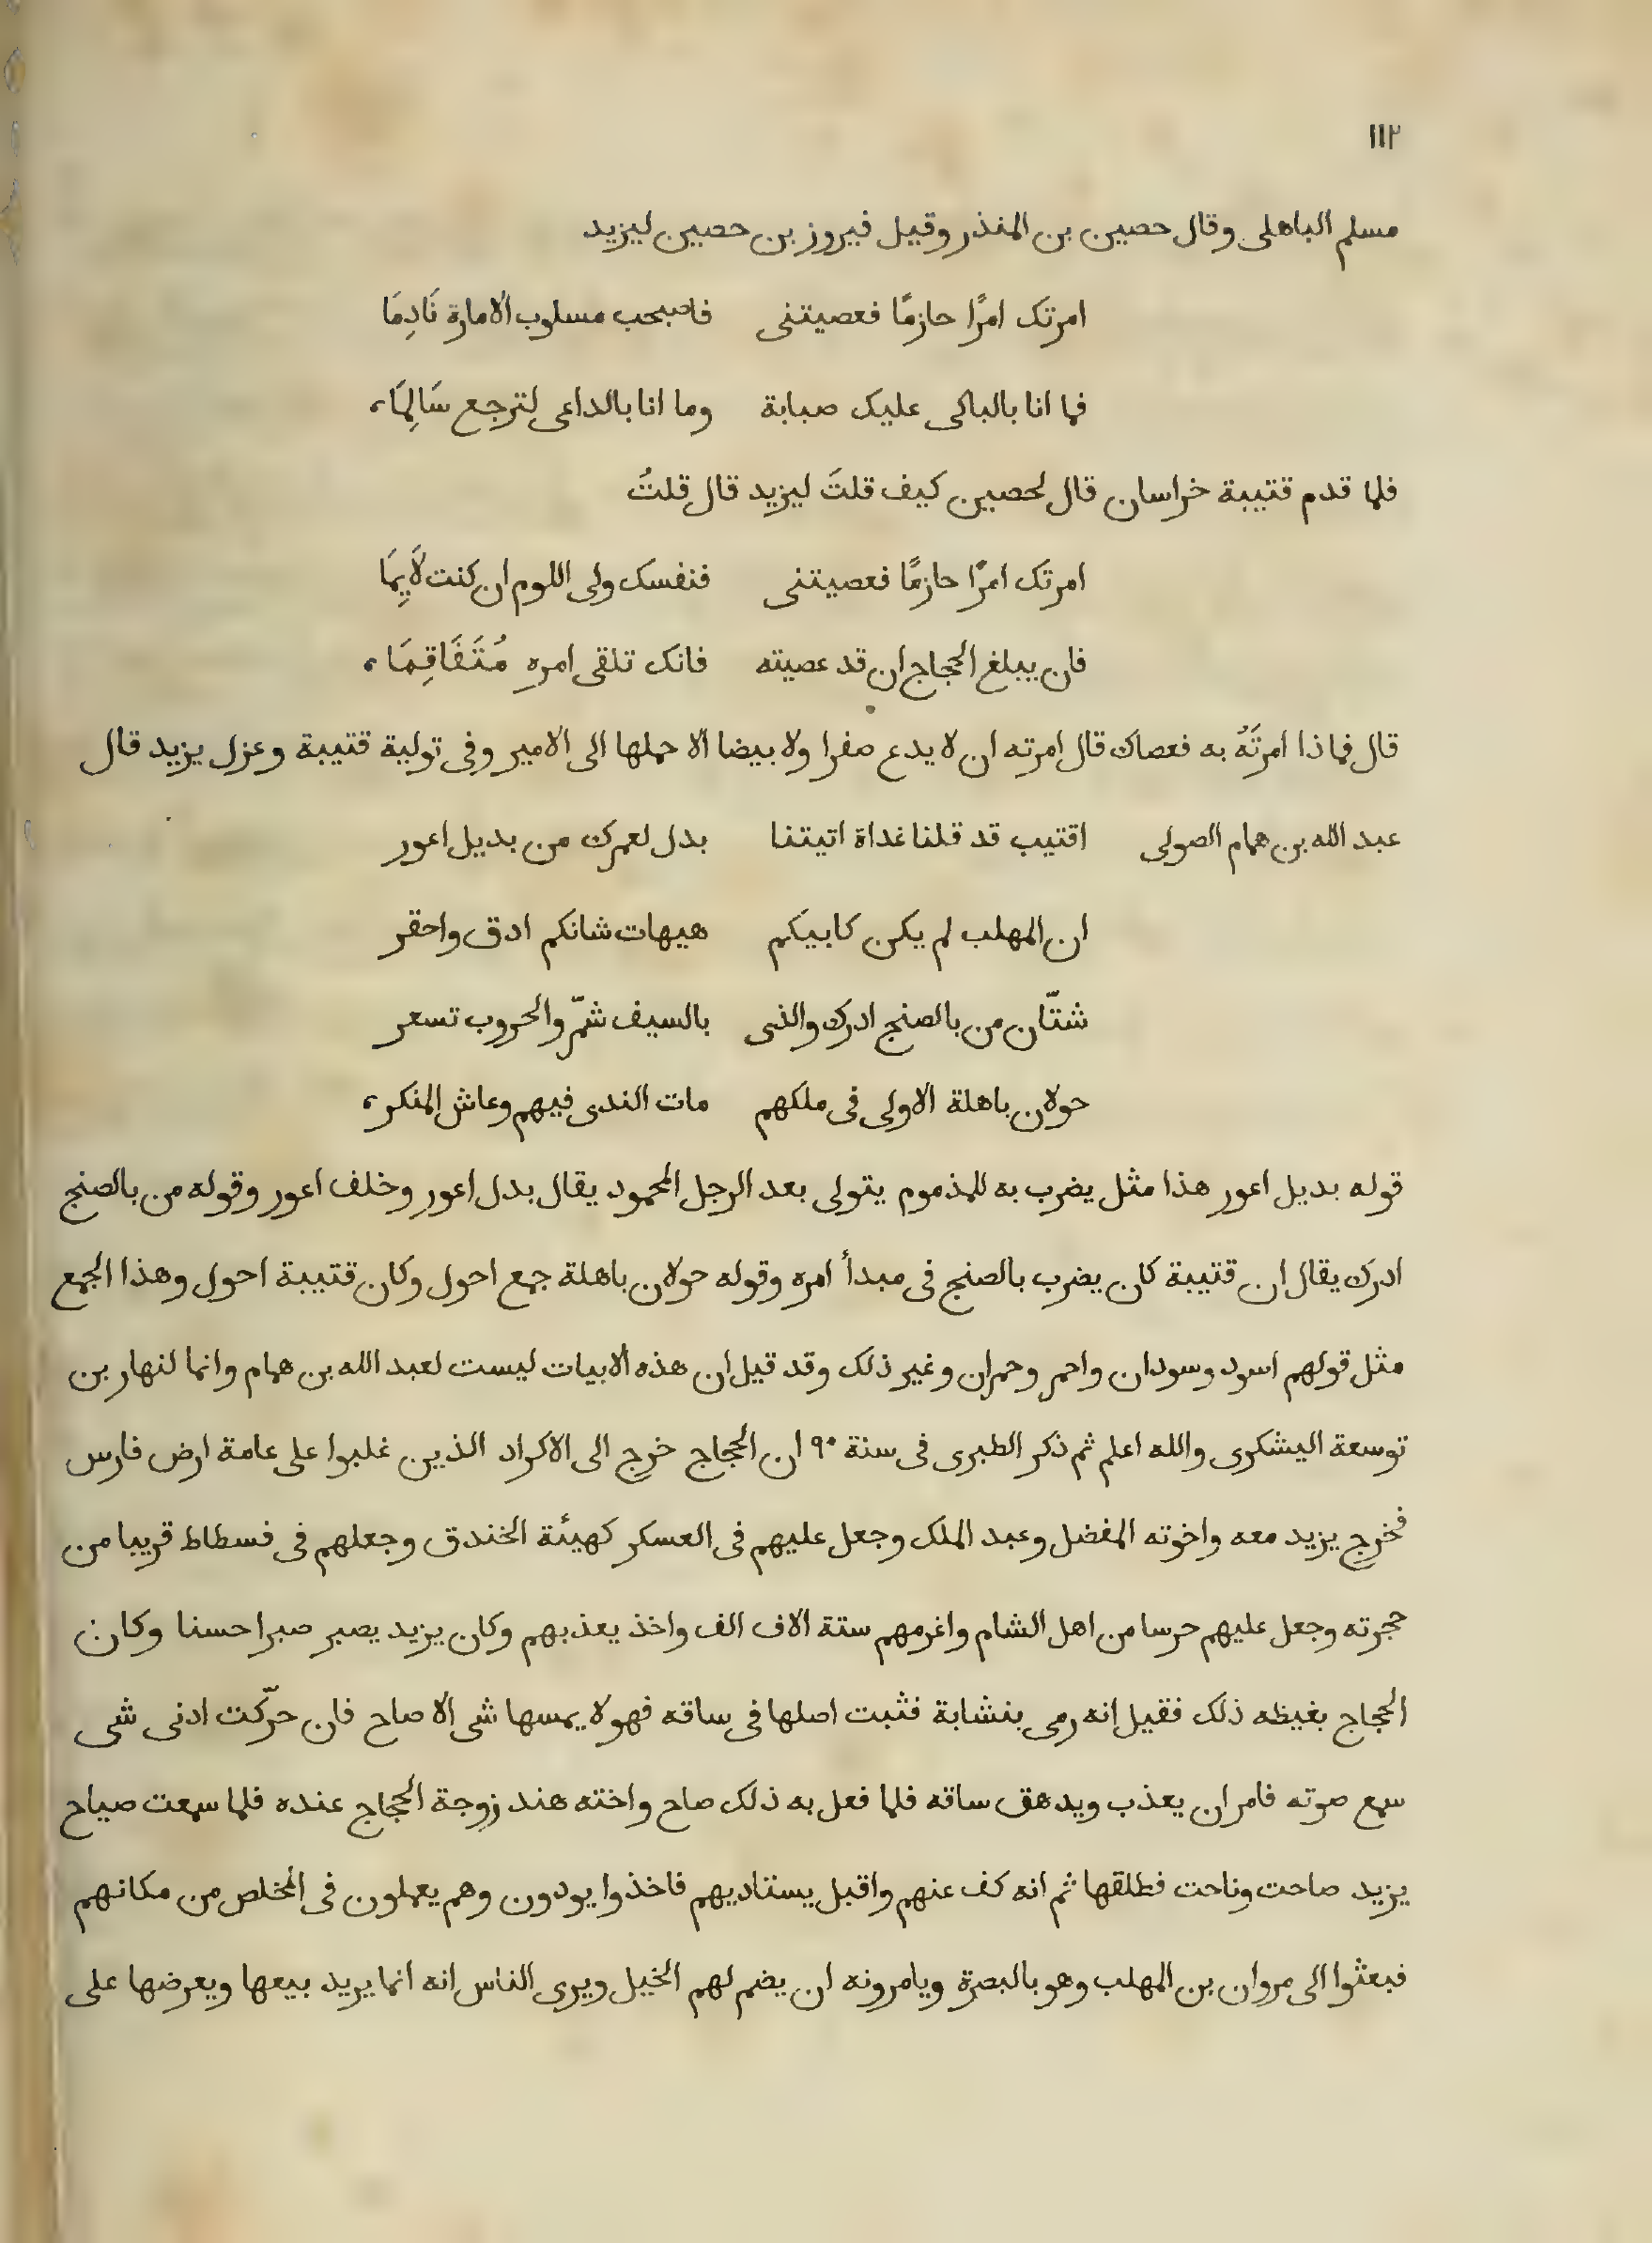 ١١٢
مسلم الباهلى وقال حصين بن المنذر وقيل فيروز بن حصين ليزيد
امرتك امرًا حازمًا فعصيتنى فاصبحب مسلوب الامارة نَادِمَا
فما انا بالباكى عليك صبابة وما انا بالداعى لترجع سَالِمَا،
فلما قدم قتيبة خراسان قال لحصين كيف قلتَ ليزيد قال قلتُ
امرتك امرًا حازمًا فعصيتنى فنفسك ولى اللوم ان كنت لَايِمَا
فان يبلغ الحجاج ان قد عصيته فانك تلقى امرهِ مُتَفَاقِمَا،
قال فماذا امرتَهُ به فعصاك قال امرته ان لا يدع صفرا ولا بيضا الا حملها الى الامير وفى تولية قتيبة وعزل يزيد قال
عبد الله بن همام الصولى اقتيب قد قلنا غداة اتيتنا بدل لعمرك من بديل اعور
ان المهلب لم يكن كابيكم هيهات شانكم ادق واحقر
شتّان من بالصنج ادرك والذى بالسيف شمّر والحروب تسعر
حولان باهلة الاولى فى ملكهم مات الندى فيهم وعاش المنكر،
قوله بديل اعور هذا مثل يضرب به للمذموم يتولى بعد الرجل المحمود يقال بدل اعور وخلف اعور وقوله من بالصنج
ادرك يقال ان قتيبة كان يضرب بالصنج فى مبدأ امره وقوله حولان باهلة جمع احول وكان قتيبة احول وهذا الجمع
مثل قولهم اسود وسودان واحمر وحمران وغير ذلك وقد قيل ان هذه الابيات ليست لعبد الله بن همام وانما لنهار بن
توسعة اليشكرى والله اعلم ثم ذكر الطبرى فى سنة ٩٠ ان الحجاج خرج الى الاكراد الذين غلبوا على عامة ارض فارس
فخرج يزيد معه واخوته المفضل وعبد الملك وجعل عليهم فى العسكر كهيئة الخندق وجعلهم فى فسطاط قريبا من
حجرته وجعل عليهم حرسا من اهل الشام واغرمهم ستة الاف الف واخذ يعذبهم وكان يزيد يصبر صبرا حسنا وكان
الحجاج بغيظه ذلك فقيل انه رمى بنشابة فثبت اصلها فى ساقه فهو لا يمسها شى الا صاح فان حرّكت ادنى شى
سمع صوته فامر ان يعذب ويدهق ساقه فلما فعل به ذلك صاح واخته هند زوجة الحجاج عنده فلما سمعت صياح
يزيد صاحت وناحت فطلقها ثم انه كف عنهم واقبل يستاديهم فاخذوا يودون وهم يعملون فى المخلص من مكانهم
فبعثوا الى مروان بن المهلب وهو بالبصرة ويامرونه ان يضم لهم الخيل ويرى الناس انه انما يريد بيعها ويعرضها على